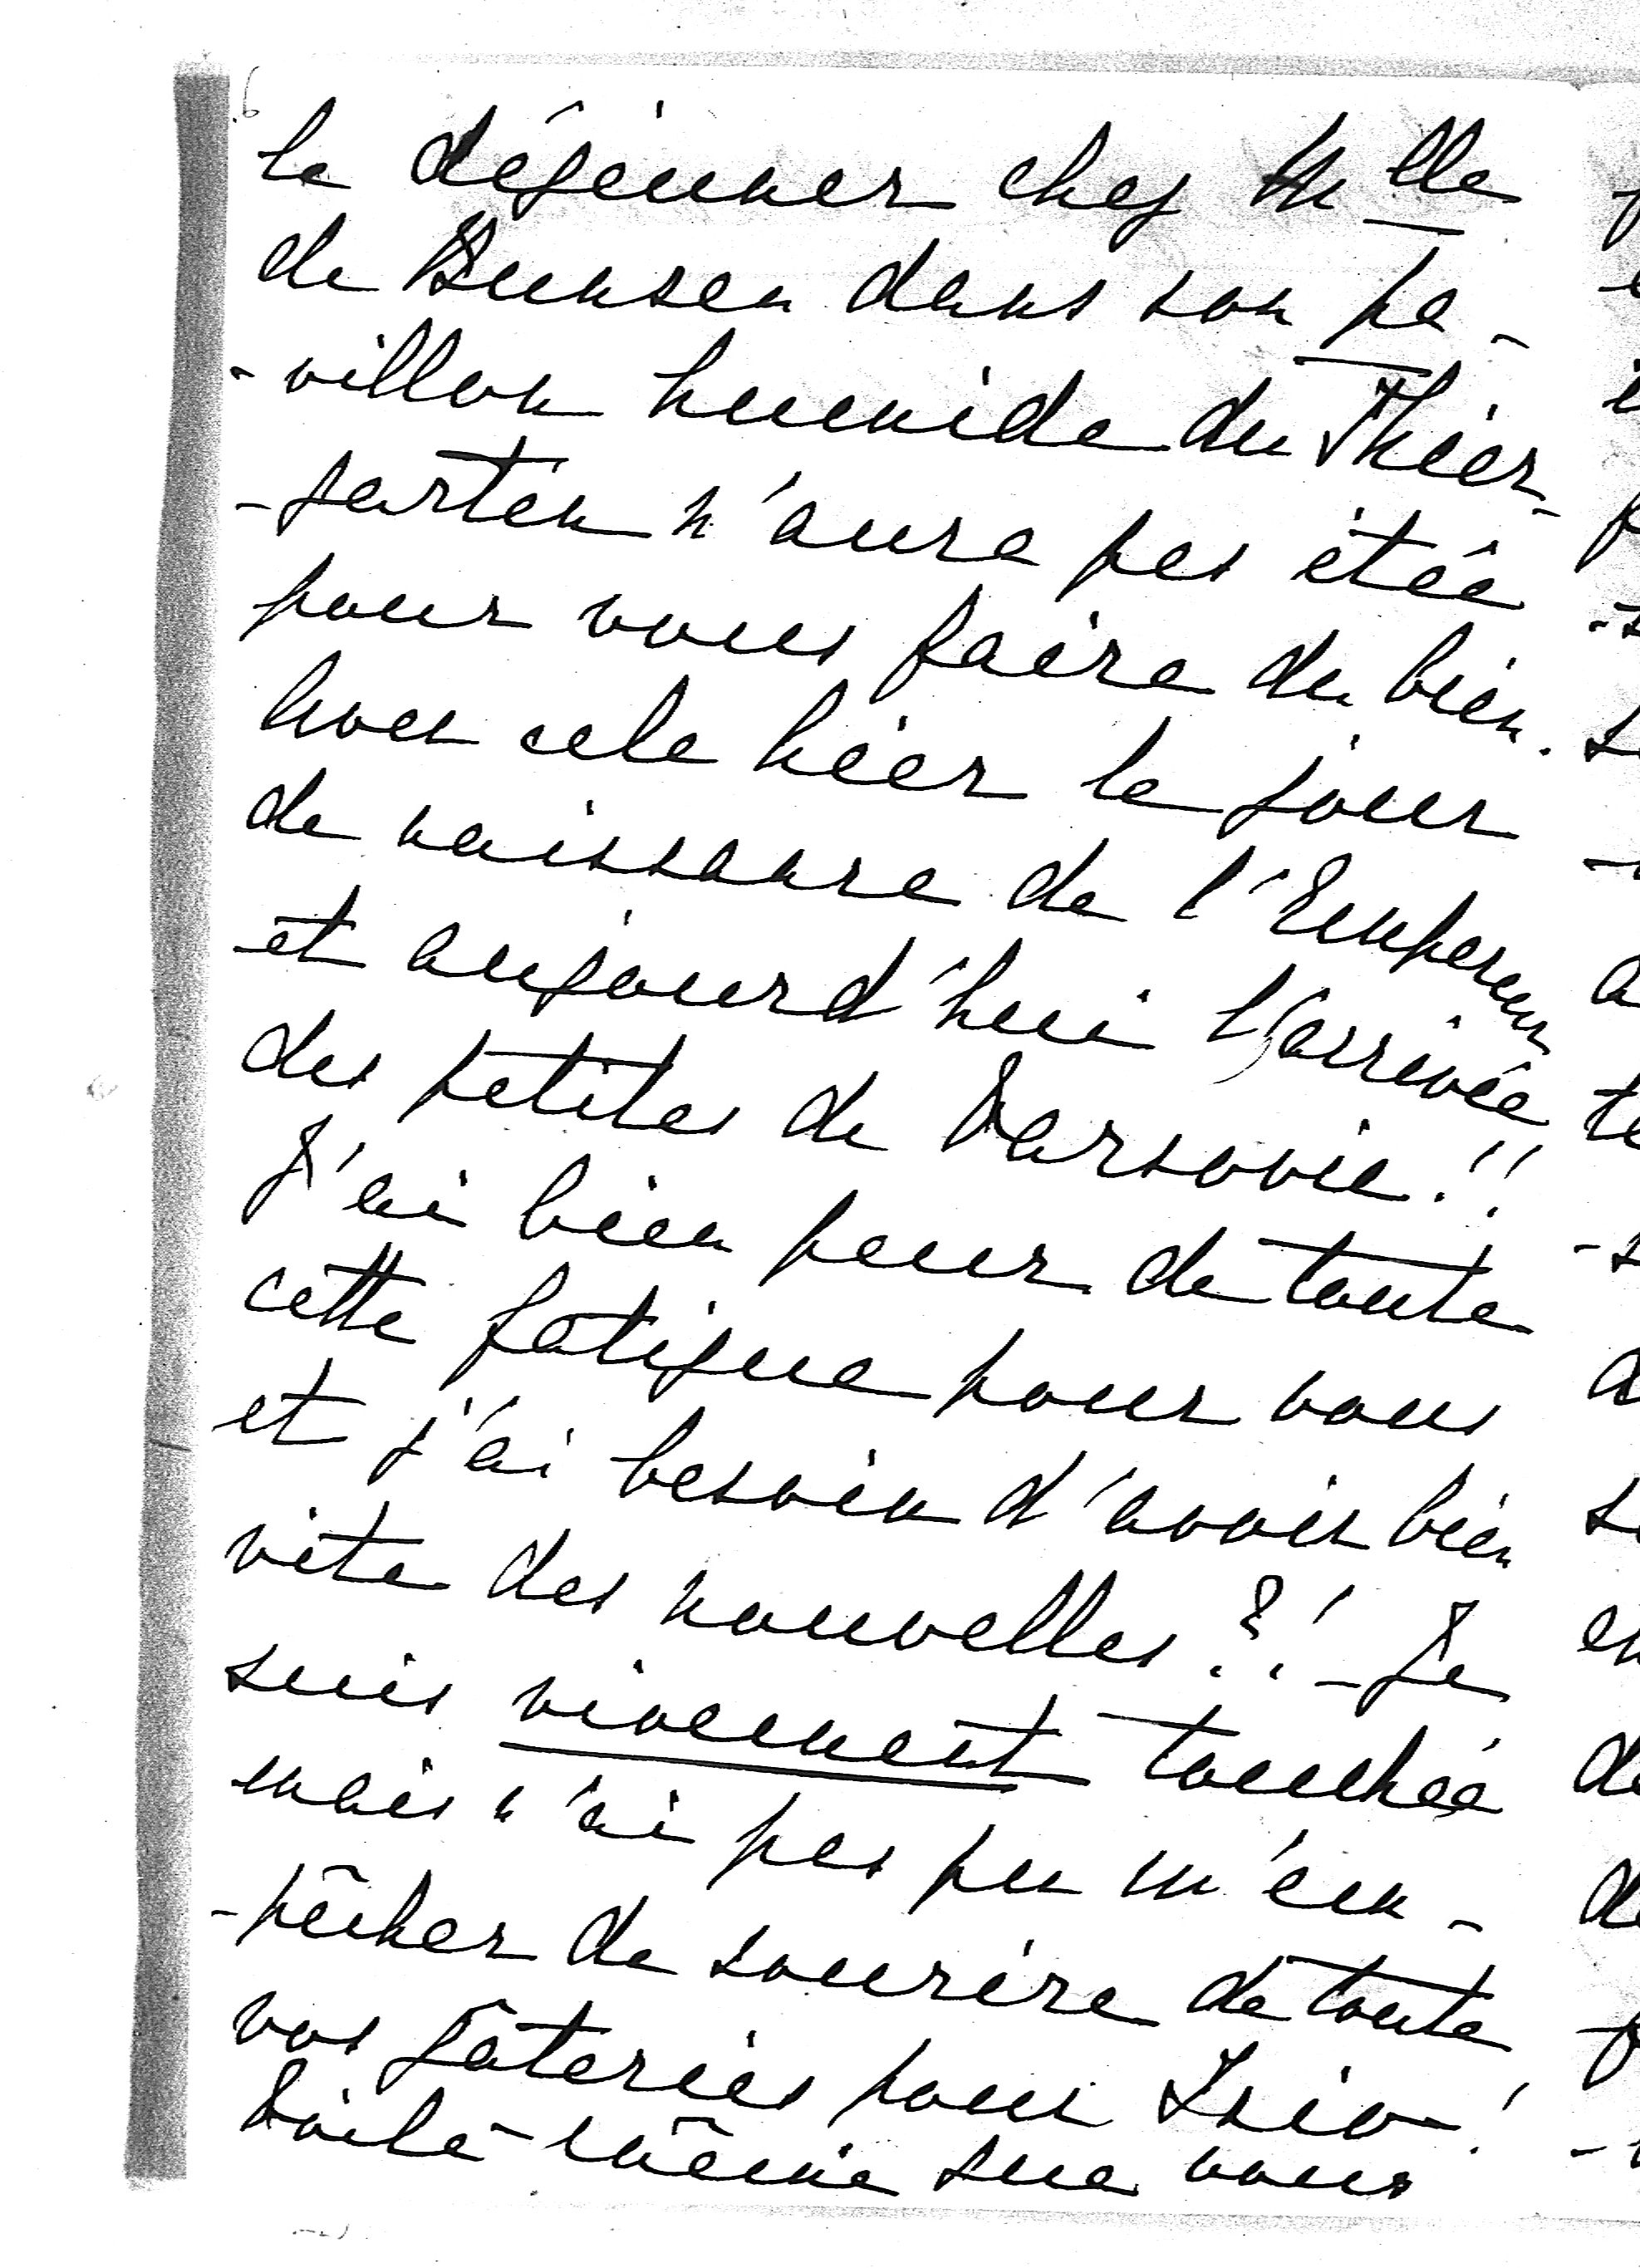 6
le déjeuner chez Mlle
de Bunsen dans son pa-
-villon humide du Thier-
-garten n'aura pas étée
pour vous faire du bien.
cela hier le jour
de naissance de l'Empereur
et aujourd'hui l'arrivée
des petites de Varsovie!!
J'ai bien peur de toute
cette fatigue pour vous
et j'ai besoin d'avoir bien
vite des nouvelles?! - Je
suis vivement touchée
mais n'ai pas pu m'em-
-pêcher de sourire de toute
vos gâteries pour Isio!
Voilà-même que vous